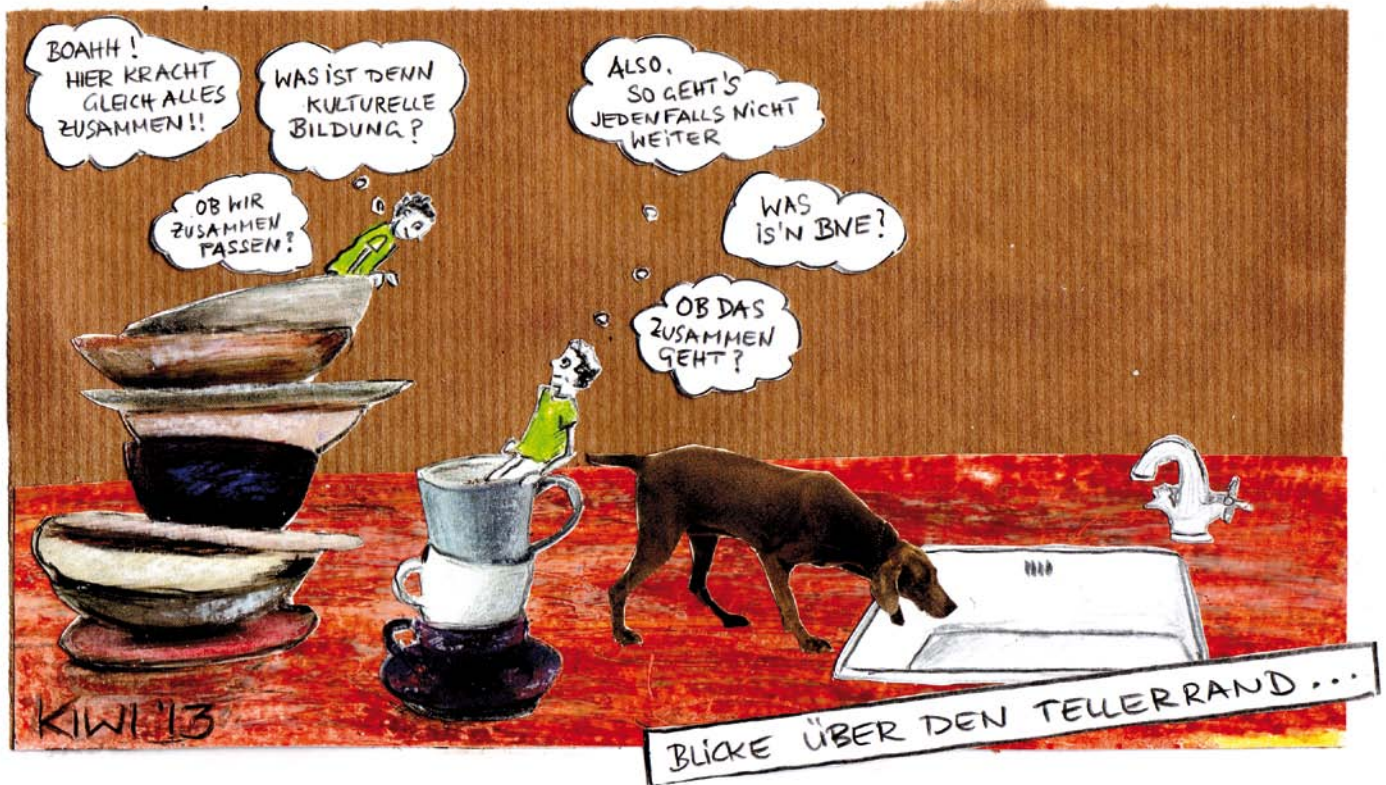 BOAHH!
HIER KRACHT
GLEICH ALLES
ZUSAMMEN!!
WAS iST DENN
KULTURELLE
BILDUNG?
OB WIR
ZUSAMMEN
PASSEN?
ALSO,
SO GEHT'S
JEDENFALLS NiCHT
WEiTER
WAS
iS'N BNE?
OB DAS
ZUSAMMEN
GEHT?
KIWI '13
BLiCKE ÜBER DEN TELLERRAND...